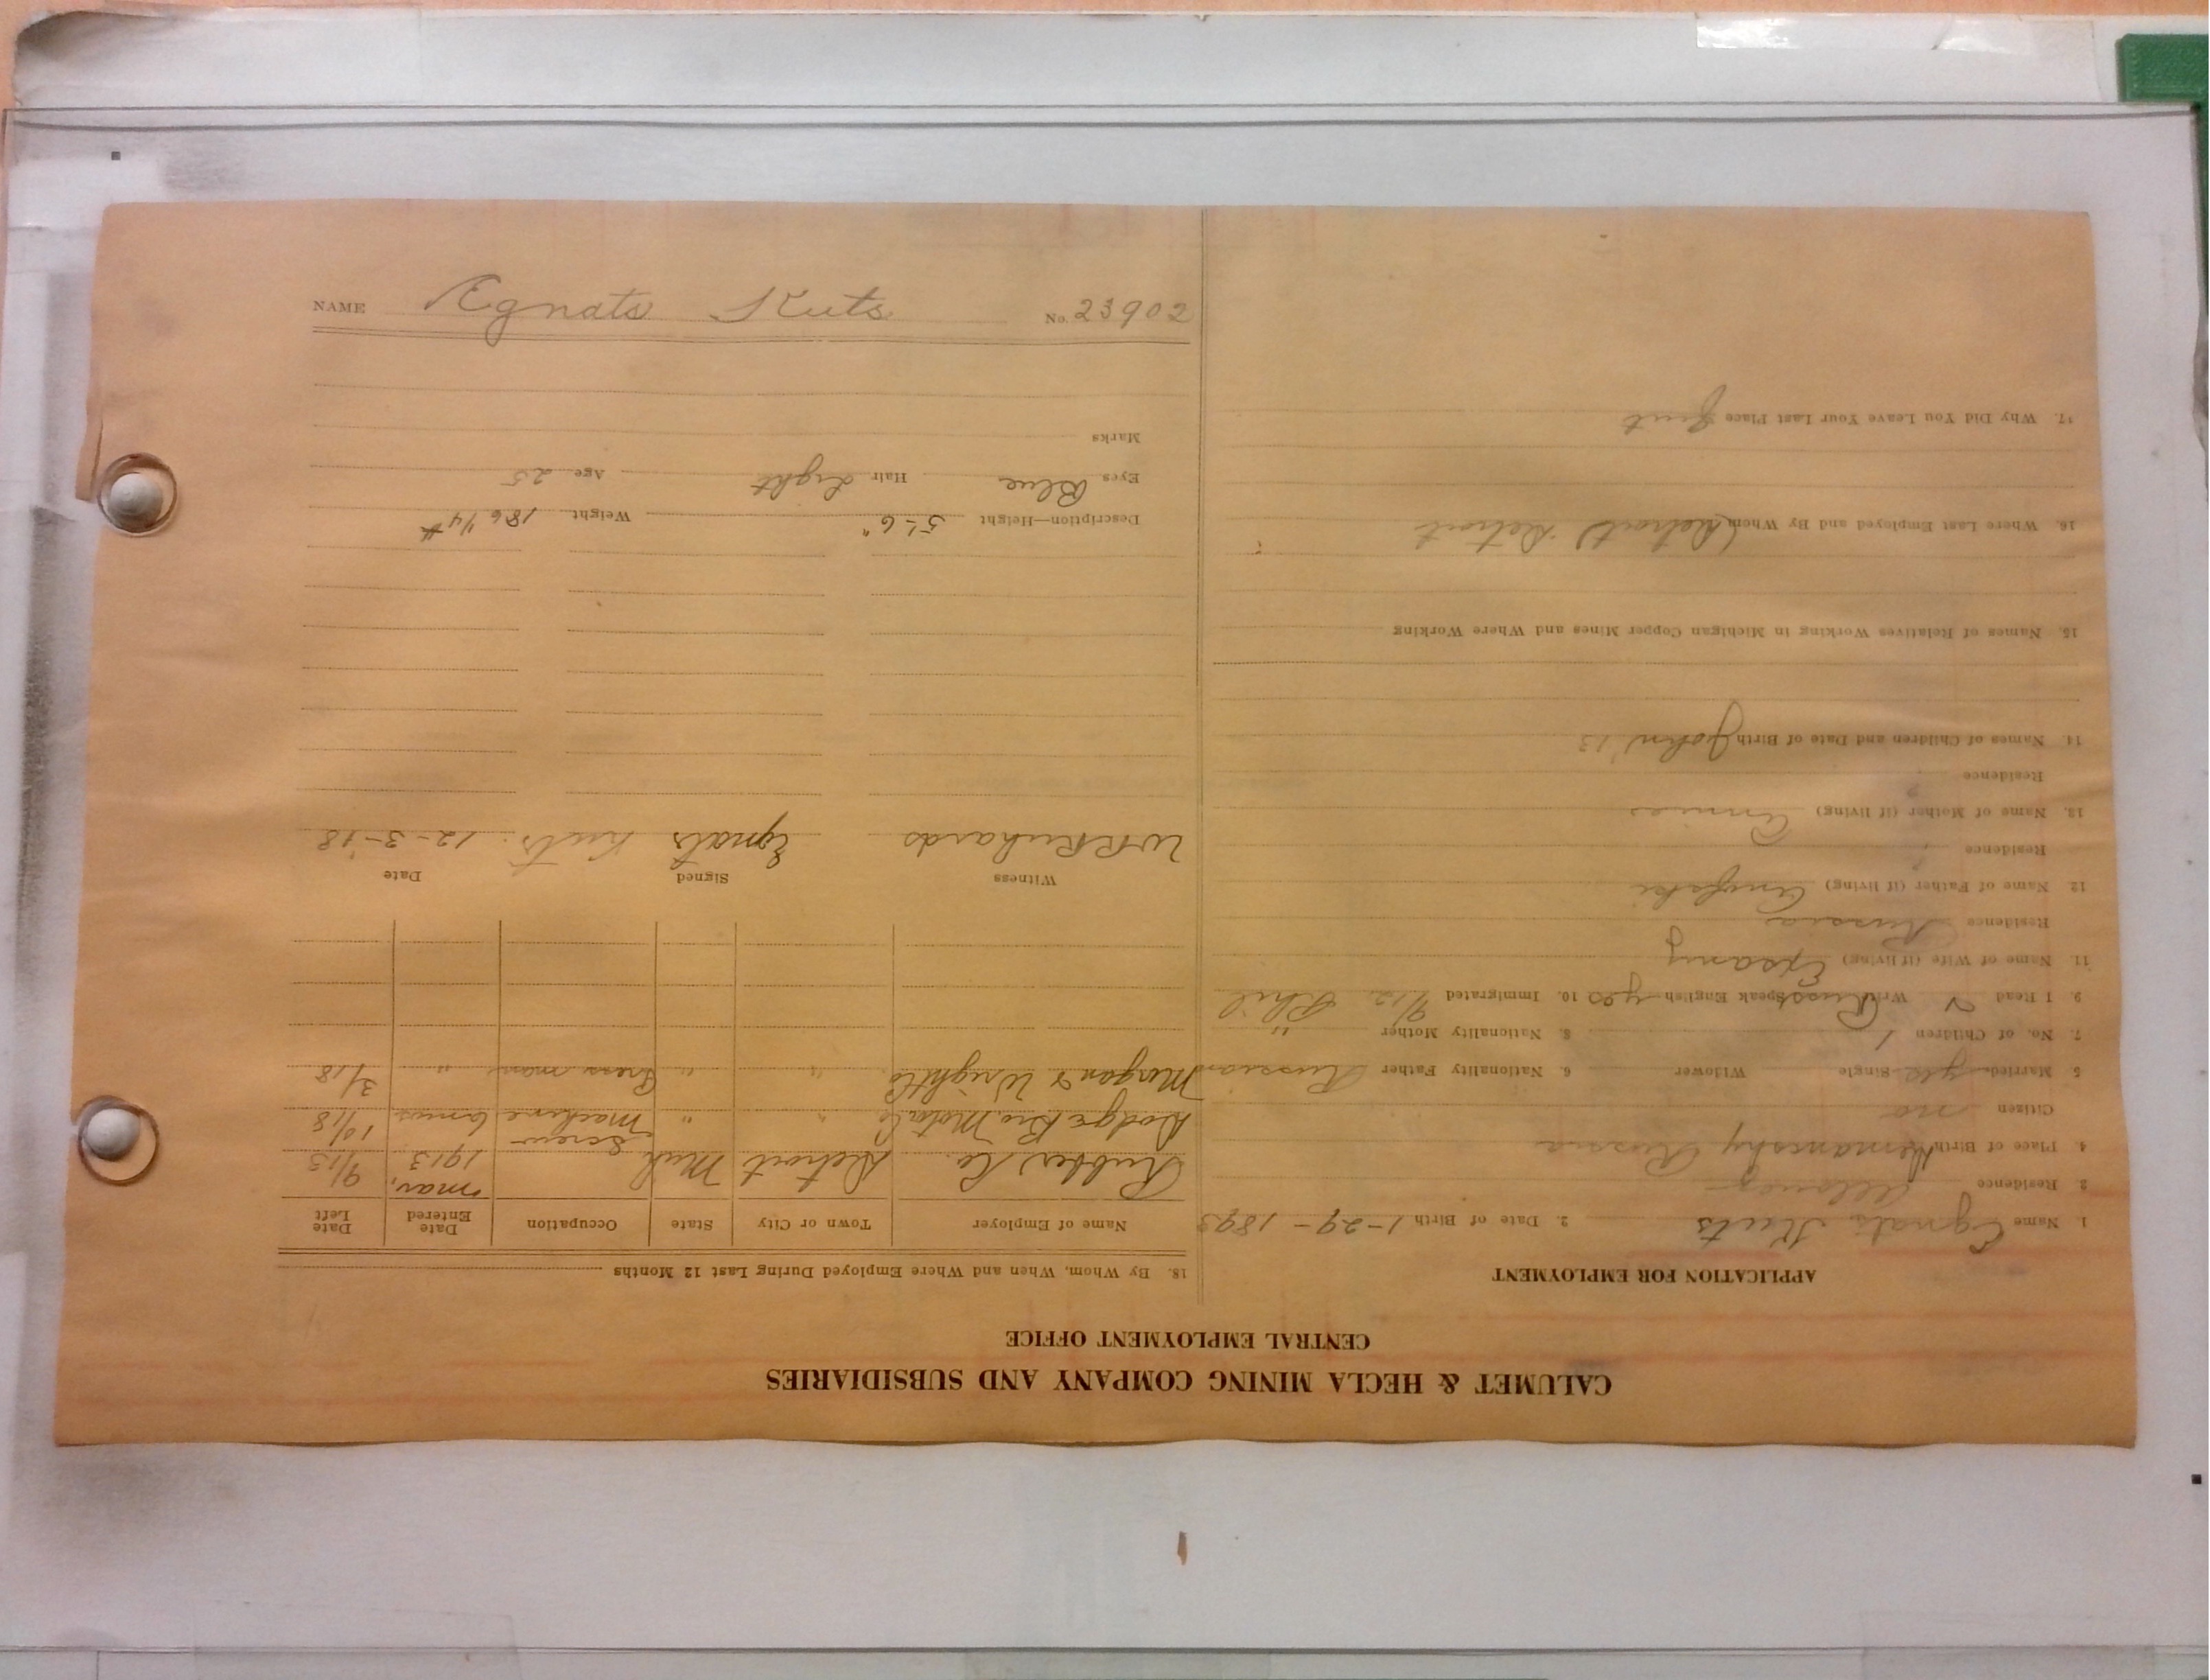 CALUMET & HECLA MINING COMPANY AND SUBSIDIARIES
CENTRAL EMPLOYMENT OFFICE
APPLICATION FOR EMPLOYMENT
1. Name Egnats Kuts 2. Date of Birth 1-29-1893
3. Residence
4. Place of Birth Russia
Citizen no
5. Married yes Single Widower 6. Nationality Father Russian
7. No. of Children 1 8. Nationality Mother "
9. I Read Write Russ Speak English yes 10. Immigrated 9/12 Phil
11. Name of Wife (if living)
Residence Russia
12. Name of Father (if living)
Residence
13. Name of Mother (if living) Annie
Residence
14. Names of Children and Date of Birth John '13
15. Names of Relatives Working in Michigan Copper Mines and Where Working
16. Where Last Employed and By Whom (Detroit) Detroit
17. Why Did You Leave Your Last Place Quit
18. By Whom, When and Where Employed During Last 12 Months
Name of Employer Town or City State Occupation Date Entered Date Left
Rubber Co. Detroit Mich mar, 1913 9/15
Dodge Bro Motor Co " " Screw Machine 10/18
Morgan & Wright Co " " Press man " 3/18
Witness Signed Date
W R Richards Egnats Kuts 12-3-18
Description—Height 5'-6" Weight 186 1/4 #
Eyes Blue Hair Light Age 25
Marks
NAME Egnats Kuts No. 23902